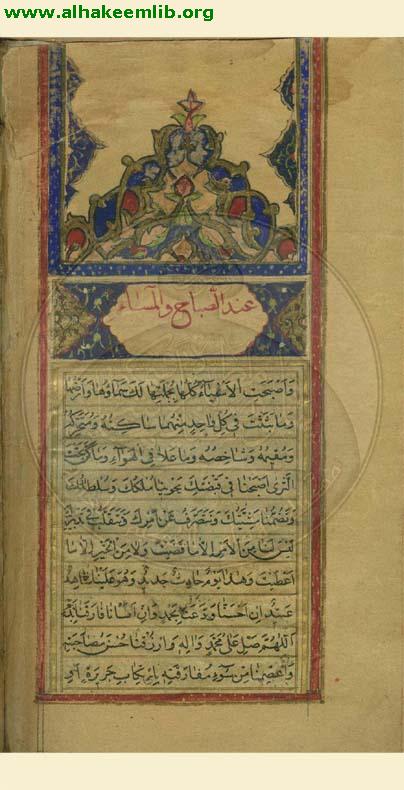 www.alhakeemlib.org
عند الصباح والمساء
وَاَصْبَحَتِ الْاَشْيَاءُ كُلُّهَا بِجُمْلَتِهَا لَكَ سَمَاؤُهَا وَاَرْضُهَا
وَمَا بَثَثْتَ فِي كُلِّ وَاحِدٍ مِنْهُمَا سَاكِنُهُ وَمُتَحَرِّكُهُ
وَمُقِيمُهُ وَشَاخِصُهُ وَمَا عَلَا فِي الْهَوَاءِ وَمَا كَنَّ تَحْتَ
الثَّرَى اَصْبَحْنَا فِي قَبْضَتِكَ يَحْوِينَا مُلْكُكَ وَسُلْطَانُكَ
وَتَضُمُّنَا مَشِيَّتُكَ وَنَتَصَرَّفُ عَنْ اَمْرِكَ وَنَتَقَلَّبُ فِي تَدْبِيرِكَ
لَيْسَ لَنَا مِنَ الْاَمْرِ اِلَّا مَا قَضَيْتَ وَلَا مِنَ الْخَيْرِ اِلَّا مَا
اَعْطَيْتَ وَهٰذَا يَوْمٌ حَادِثٌ جَدِيدٌ وَهُوَ عَلَيْنَا شَاهِدٌ
عَتِيدٌ اِنْ اَحْسَنَّا وَدَّعَنَا بِحَمْدٍ وَاِنْ اَسَأْنَا فَارَقَنَا بِذَمٍّ
اَللّٰهُمَّ صَلِّ عَلَى مُحَمَّدٍ وَآلِهِ وَارْزُقْنَا حُسْنَ مُصَاحَبَتِهِ
وَاعْصِمْنَا مِنْ سُوءِ مُفَارَقَتِهِ بِارْتِكَابِ جَرِيرَةٍ اَوِ